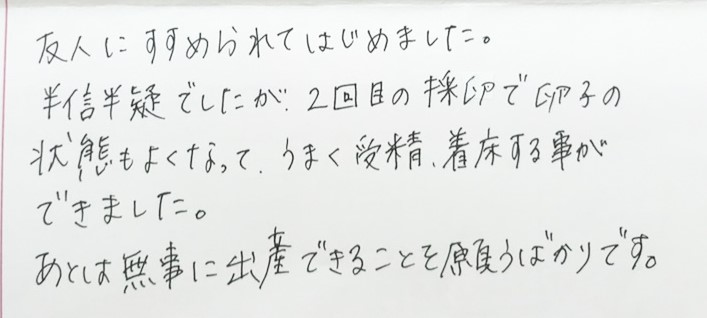 友人にすすめられてはじめました。
半信半疑でしたが、2回目の採卵で卵子の
状態もよくなって、うまく受精、着床する事が
できました。
あとは無事に出産できることを願うばかりです。